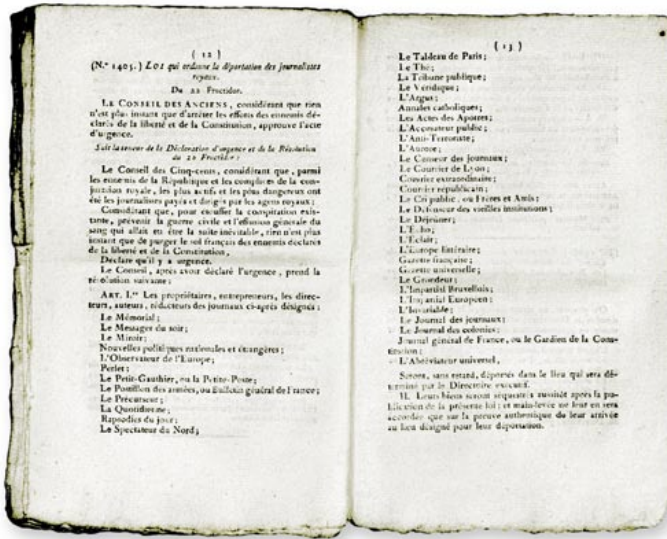 ( 12 )
(N.° 1405.) LOI qui ordonne la déportation des journalistes
royaux.
Du 22 Fructidor.
LE CONSEIL DES ANCIENS, considérant que rien
n'est plus instant que d'arrêter les efforts des ennemis dé-
clarés de la liberté et de la Constitution, approuve l'acte
d'urgence.
Suit la teneur de la Déclaration d'urgence et de la Résolution
du 20 Fructidor :
Le Conseil des Cinq-cents, considérant que, parmi
les ennemis de la République et les complices de la con-
juration royale, les plus actifs et les plus dangereux ont
été les journalistes payés et dirigés par les agens royaux ;
Considérant que, pour étouffer la conspiration exis-
tante, prévenir la guerre civile et l'effusion générale du
sang qui allait en être la suite inévitable, rien n'est plus
instant que de purger le sol français des ennemis déclarés
de la liberté et de la Constitution,
Déclare qu'il y a urgence.
Le Conseil, après avoir déclaré l'urgence, prend la
résolution suivante :
ART. I.er Les propriétaires, entrepreneurs, les direc-
teurs, auteurs, rédacteurs des journaux ci-après désignés :
Le Mémorial ;
Le Messager du soir ;
Le Miroir ;
Nouvelles politiques nationales et étrangères ;
L'Observateur de l'Europe ;
Perlet ;
Le Petit-Gauthier, ou la Petite-Poste ;
Le Postillon des armées, ou Bulletin général de France ;
Le Précurseur ;
La Quotidienne ;
Rapsodies du jour ;
Le Spectateur du Nord ;
( 13 )
Le Tableau de Paris ;
Le Thé ;
La Tribune publique ;
Le Véridique ;
L'Argus ;
Annales catholiques ;
Les Actes des Apotres ;
L'Accusateur public ;
L'Anti-Terroriste ;
L'Aurore ;
Le Censeur des journaux ;
Le Courrier de Lyon ;
Courrier extraordinaire ;
Courrier républicain ;
Le Cri public, ou Frères et Amis ;
Le Défenseur des vieilles institutions ;
Le Déjeûner ;
L'Écho ;
L'Éclair ;
L'Europe littéraire ;
Gazette française ;
Gazette universelle ;
Le Grondeur ;
L'Impartial Bruxellois ;
L'Impartial Européen ;
L'Invariable ;
Le Journal des journaux ;
Le Journal des colonies ;
Journal général de France, ou le Gardien de la Cons-
titution ;
L'Abréviateur universel,
Seront, sans retard, déportés dans le lieu qui sera dé-
terminé par le Directoire exécutif.
II. Leurs biens seront séquestrés aussitôt après la pu-
blication de la présente loi ; et main-levée ne leur en sera
accordée que sur la preuve authentique de leur arrivée
au lieu désigné pour leur déportation.